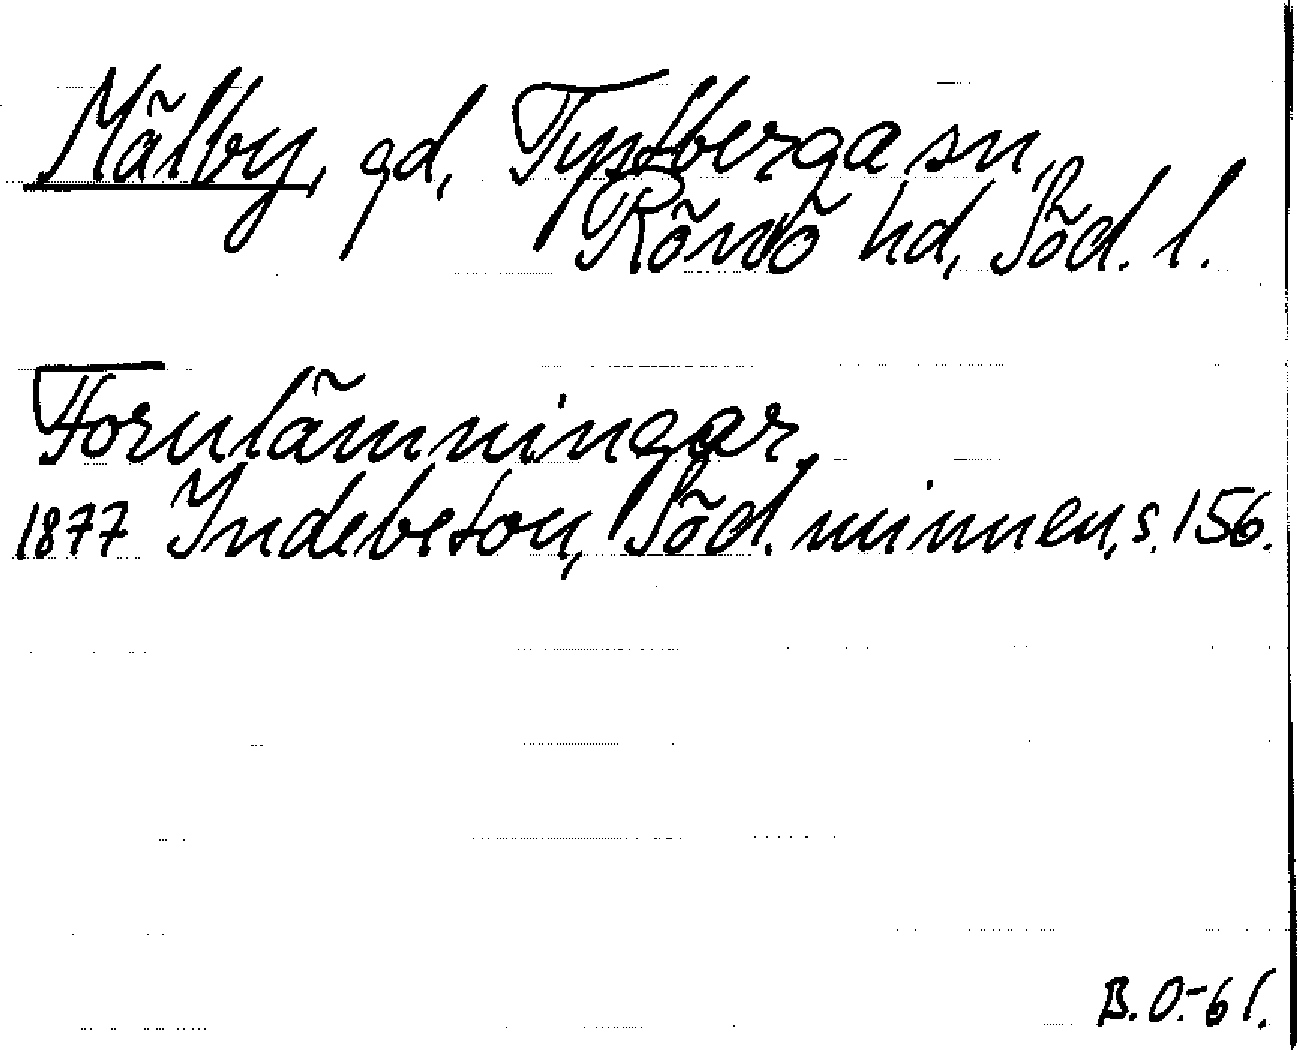 Mälby, gd, Tystberga sn,
Rönö hd, Söd. l.
Fornlämningar.
1877 Indebetou, Söd. minnen, s. 156.
B.O.-61.